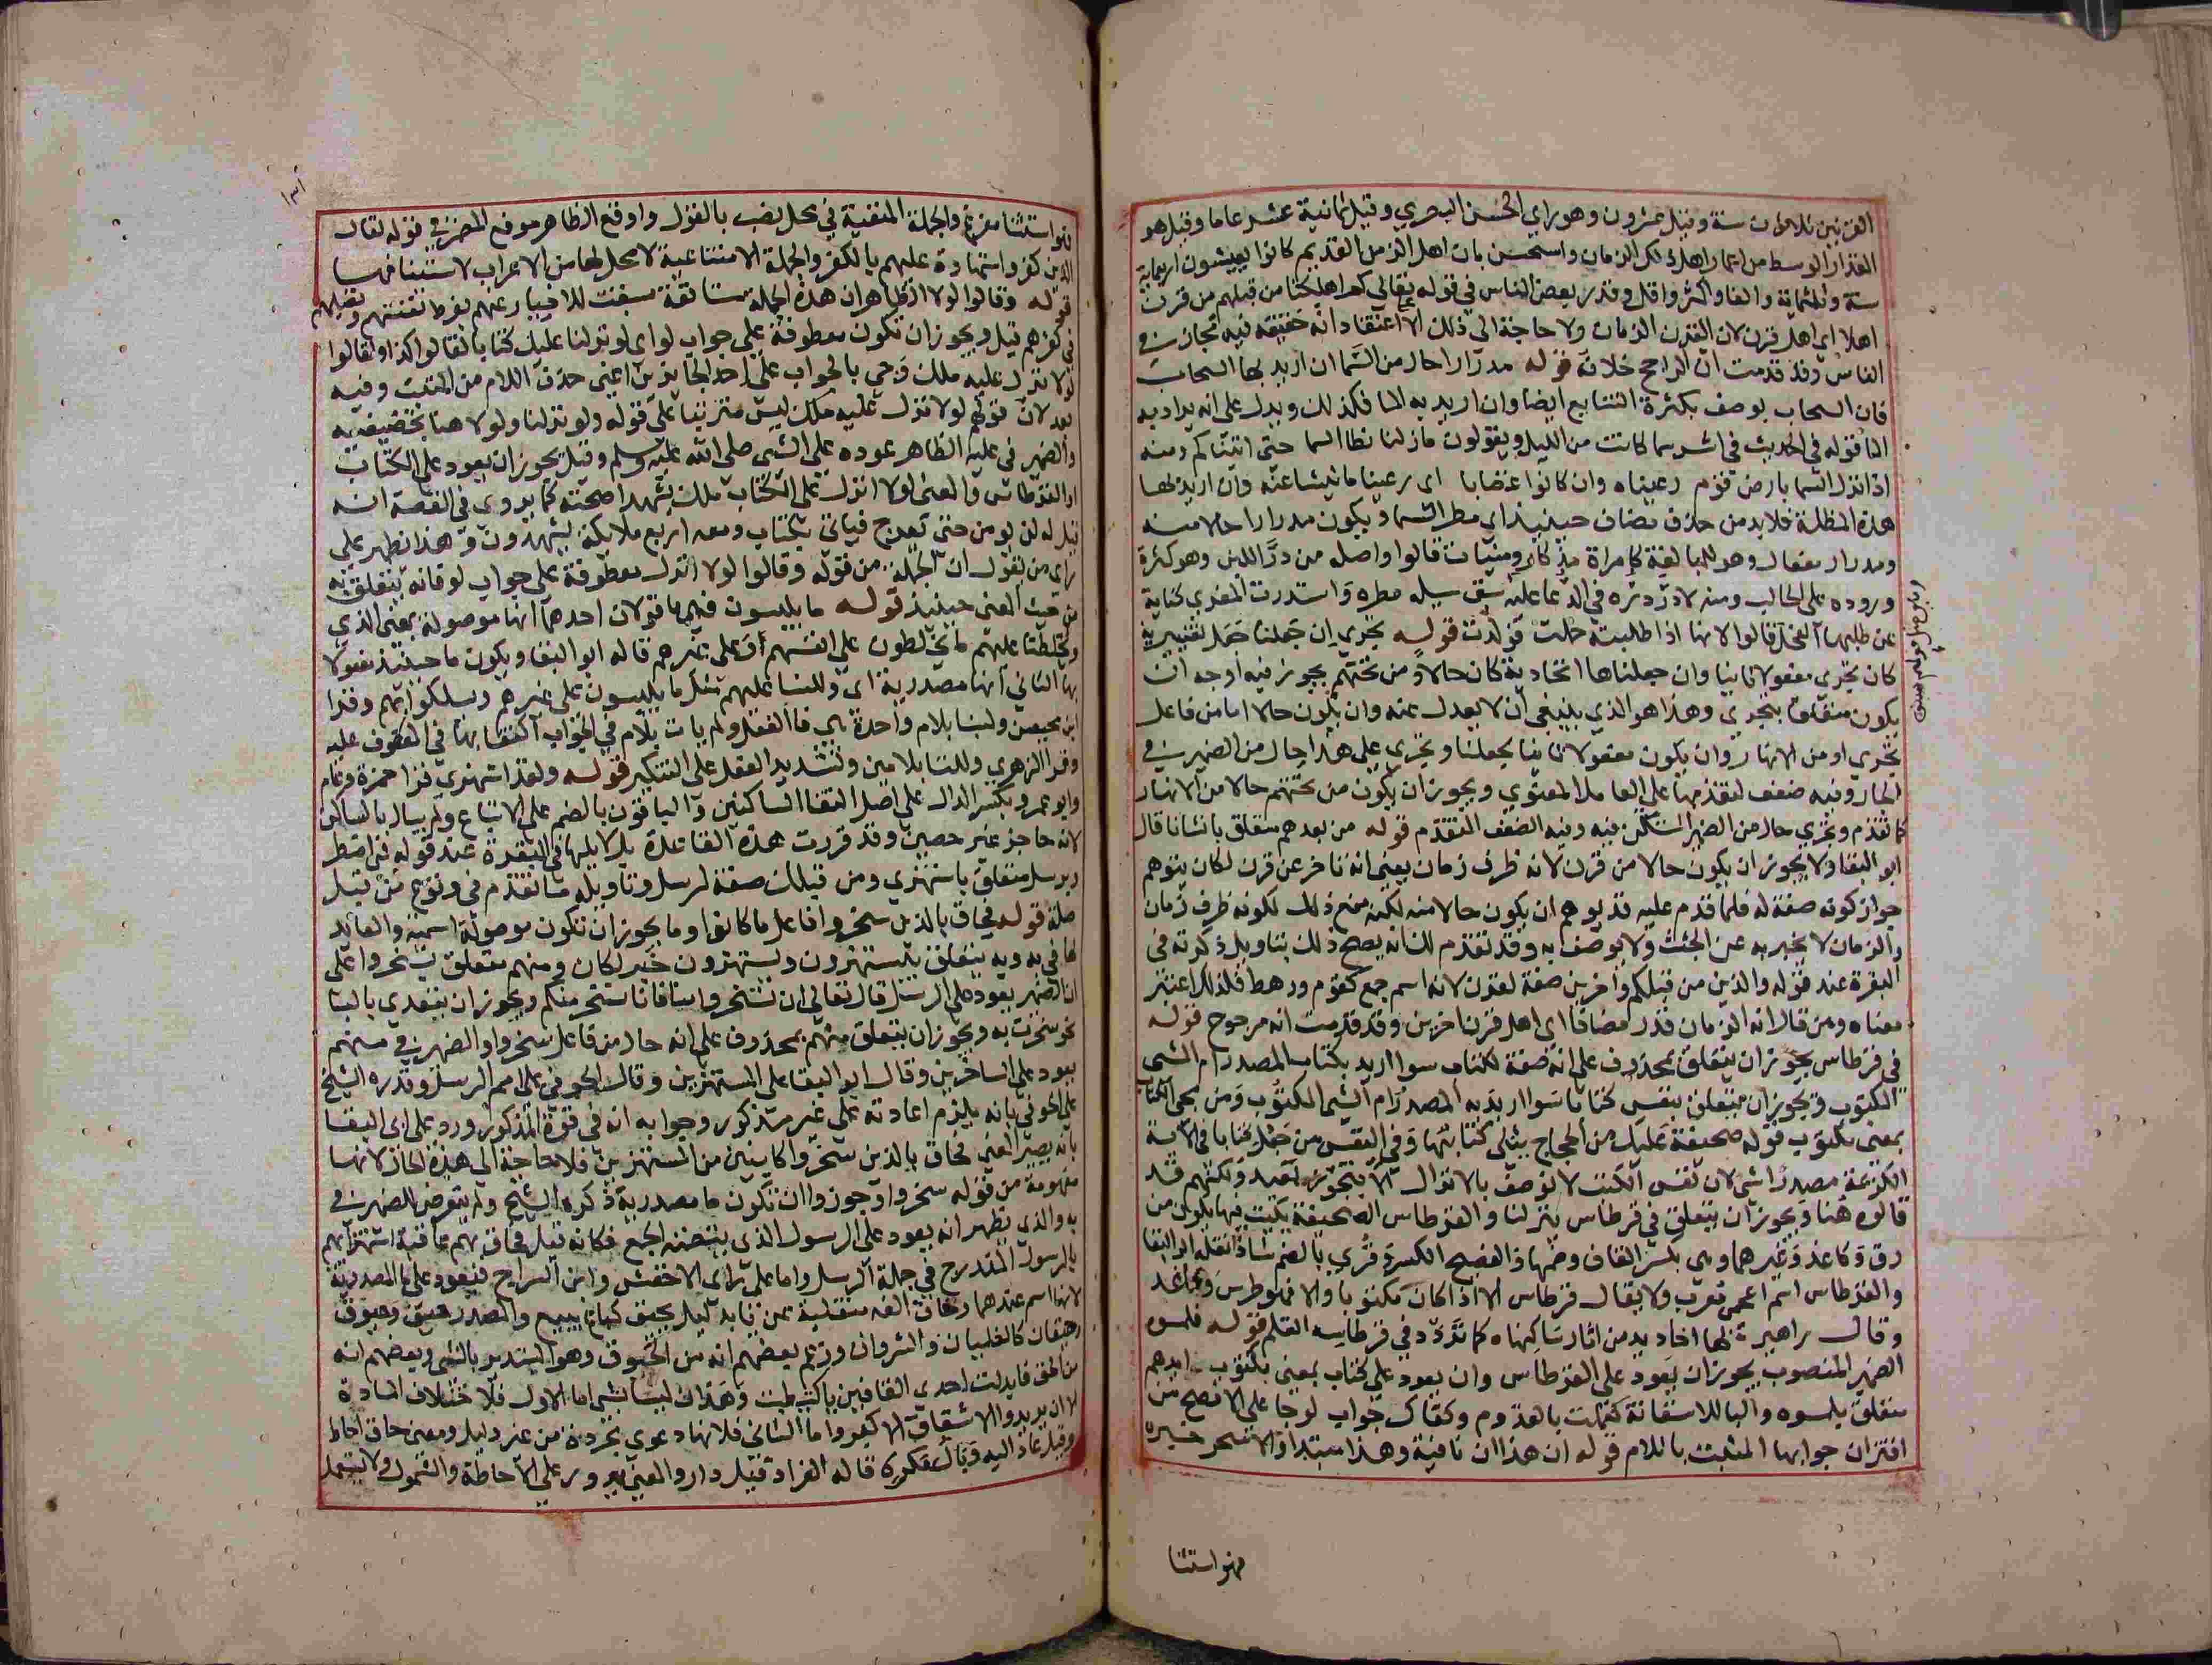 القرنين ثلاثون سنة وقيل عشرون وهو راي الحسن البصري وقيل ثمانية عشر عاما وقيل هو
المقدار الوسط من اعمار اهل ذلك الزمان واستحسن بان اهل الزمن القديم كانوا يعيشون اربعماية
سنة وثلثماية والفا واكثر واقل وقدر بعض الناس في قوله تعالي كم اهلكنا من قبلهم من قرن
اهلا اي اهل قرن لان القرن الزمان ولا حاجة الي ذلك الا اعتقاد انه حقيقة فيه مجاز في
الناس وقد قدمت ان الراجح خلافه قوله مدرارا حال من السما ان اريد بها السحاب
فان السحاب يوصف بكثرة التتابع ايضا وان اريد به الما فكذلك ويدل على انه يراد به
الما قوله في الحديث في اثر سما كانت من الليل ويقولون مازلنا نطا السما حتى اتيناكم ومنه
اذا نزل السما بارض قوم رعيناه وان كانوا غضابا اي رعينا ما ينشا عنه وان اريد بها
هذه المظلة فلابد من حذف مضاف حينيذ اي مطر السما ويكون مدرارا حالا منه
ومدرار مفعال وهو للمبالغة كامراة مذكار ومينات قالوا واصله من در اللبن وهو كثرة
وروده على الحالب ومنه لا در دره في الدعا عليه سيله مطره واستدرت المعزي كناية
عن طلبها الفحل قالوا لانها اذا طلبته حملت فولدت قوله تجري ان جعلنا جعل تصييرية
كان تجري مفعولا ثانيا وان جعلناها اتخادية كان حالا ومن تحتهم يجوز فيه اوجه ان
يكون متعلقا بتجري وهذا هو الذي ينبغي ان لا يعدل عنه وان يكون حالا اما من فاعل
تجري او من الانهار وان يكون مفعولا ثانيا بجعلنا وتجري على هذا حال من الضمير في
الجار وفيه ضعف لتقدمها علي العامل المعنوي ويجوز ان يكون من تحتهم حالا من الانهار
كما تقدم وتجري حال من الضمير المستكن فيه وفيه الضعف المتقدم قوله من بعدهم متعلق بانشانا قال
ابو البقا ولا يجوز ان يكون حالا من قرن لانه ظرف زمان يعني انه تاخر عن قرن لكان يتوهم
جواز كونه صفة له فلما قدم عليه قد يوهم ان يكون حالا منه لكنه منع ذلك لكونه ظرف زمان
والزمان لا يخبر به عن الجثث ولا يوصف به وقد تقدم لنا انه يصح ذلك بتاويل ذكرته في
البقرة عند قوله والذين من قبلكم واخرين صفة لقرن لانه اسم جمع كقوم ورهط فلذلك اعتبر
معناه ومن قال انه الزمان قدر مضافا اي اهل قرن اخرين وقد قدمت انه مرجوح قوله
في قرطاس يجوز ان يتعلق بمحذوف على انه صفة لكتاب سوا اريد بكتاب المصدر ام الشي
المكتوب ويجوز ان يتعلق بنفس كتابا سوا اريد به المصدر ام الشي المكتوب ومن مجي الكتاب
بمعني مكتوب قوله صحيفة عليك من الحجاج يتلي كتابتها وفي النفس من جعل كتابا في الاية
الكريمة مصدرا شي لان نفس الكتب لا توصف بالانزال الا بتجوز بعيد ولكنهم قد
قالوه هنا ويجوز ان يتعلق في قرطاس بنزلنا والقرطاس الصحيفة يكتب فيها يكون من
رق وكاغد وغيرهما وهي بكسر القاف وضمها والفصيح الكسر وقري بالضم شاذا نقله ابو البقا
والقرطاس اسم اعجمي معرب ولا يقال قرطاس الا اذا كان مكتوبا والا فهو طرس وكاغد
وقال زهير لها اخاديد من اثار ساكنها كما تردد في قرطاسه القلم قوله فلمسوه
الضمير المنصوب يجوز ان يعود على القرطاس وان يعود على كتاب بمعني مكتوب بايديهم
متعلق بلمسوه والبا للاستعانة كعملت بالقدوم وكقال جواب لو جا على الافصح من
اقتران جوابها المثبت باللام قوله ان هذا ان نافية وهذا مبتدا والا سحر خبره
فهو استثنا
فهو استثنا مفرغ والجملة المنفية في محل نصب بالقول واوقع الظاهر موقع المضمر في قوله لقال
الذين كفروا شهادة عليهم بالكفر والجملة الامتناعية لا محل لها من الاعراب لاستينافها
قوله وقالوا لولا انزل الظاهر ان هذه الجملة مستانفة سيقت للاخبار عنهم بفرط تعنتهم وتصلبهم
في كفرهم قيل ويجوز ان تكون معطوفة على جواب لو اي لو نزلنا عليك كتابا لقالوا كذا ولقالوا
لولا نزل عليه ملك وجي بالجواب على احد الجايزين اعني حذف اللام من المثبت وفيه
بعد لان قولهم لولا نزل عليه ملك ليس مترتبا على قوله ولو نزلنا ولولا هنا تحضيضية
والضمير في عليه الظاهر عوده على النبي صلى الله عليه وسلم وقيل يجوز ان يعود على الكتاب
او القرطاس والمعنى لولا انزل على الكتاب ملك يشهد بصحته كما يروى في القصة انه
قيل له لن نومن حتى تعرج فتاتي بكتاب ومعه اربع ملايكة يشهدون وهذا يظهر على
راي من يقول ان الجملة من قوله وقالوا لولا انزل معطوفة على جواب لو فانه يتعلق به
من حيث المعنى حينيذ قوله ما يلبسون فيها قولان احدهما انها موصولة بمعنى الذي
وخلطنا عليهم ما يخلطون على انفسهم او على غيرهم قاله ابو البقا ويكون ما حينيذ مفعولا
بها الثاني انها مصدرية اي وللبسنا عليهم مثل ما يلبسون على غيرهم ويسلكونهم وقرا
ابن محيصن ولبسنا بلام واحدة هي فا الفعل ولم يات بلام في الجواب اكتفا بها في المعطوف عليه
وقرا الزهري وللبسنا بلامين وتشديد الفعل على التكثير قوله ولقد استهزي قرا حمزة وعاصم
وابو عمرو بكسر الدال على اصل التقا الساكنين والباقون بالضم على الاتباع ولم يبال بالساكن
لانه حاجز غير حصين وقد قررت هذه القاعدة بدلايلها في البقرة عند قوله فمن اضطر
وبرسل متعلق باستهزي ومن قبلك صفة لرسل وتاويله ما تقدم في وقوع من قبل
صلة قوله فحاق بالذين سخروا فاعله ما كانوا وما يجوز ان تكون موصولة اسمية والعايد
الها في به وبه يتعلق بيستهزون ويستهزون خبر لكان ومنهم متعلق بسخروا على
ان الضمير يعود على الرسل قال تعالى ان تسخروا منا فانا نسخر منكم ويجوز ان يتعدي بالبا
نحو سخرت به ويجوز ان يتعلق منهم بمحذوف على انه حال من فاعل سخروا والضمير في منهم
يعود على الساخرين وقال ابو البقا على المستهزيين وقال الحوفي على امم الرسل وقد رده الشيخ
على الحوفي بانه يلزم اعادته على غير مذكور وجوابه انه في قوة المذكور ورد على ابي البقا
بانه يصير المعنى فحاق بالذين سخروا كاينين من المستهزيين فلا حاجة الى هذه الحال لانها
مفهومة من قوله سخروا وجوزوا ان تكون ما مصدرية ذكره الشيخ ولم يتعرض للضمير في
به والذي يظهر انه يعود على الرسول الذي يتضمنه الجمع فكانه قيل فحاق بهم عاقبة استهزايهم
بالرسول المندرج في جملة الرسل واما على راي الاخفش وابن السراج فيعود على ما المصدرية
لانها اسم عندهما وحاق الفه منقلبة عن يا بدليل يحيق كباع يبيع والمصدر حيق وحيوق
وحيقان كالغليان والنزوان وزعم بعضهم انه من الحوق وهو المستدير بالشي وبعضهم انه
من الحق فابدلت احدي القافين يا وهذان ليسا بشي اما الاول فلاختلاف المادة
الا ان يريدوا الاشتقاق الاكبر واما الثاني فلانها دعوى مجردة من غير دليل ومعنى حاق احاط
وقيل عاد اليه وبال مكره قاله الفرا وقيل دار والمعنى يدور على الاحاطة والشمول ولا يستعمل